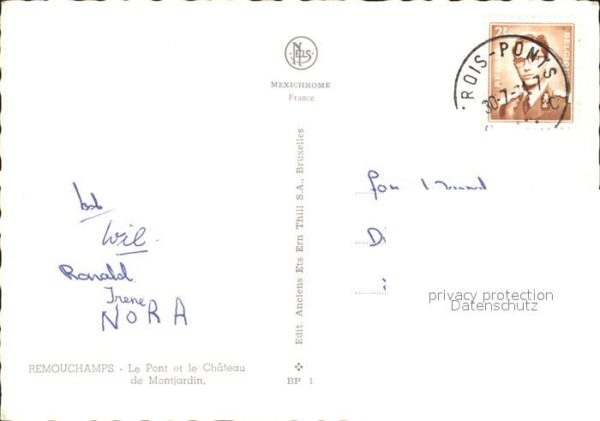 NELS
MEXICHROME
France
ROIS-PONTS
30-7-
2F
bob
Wil
Ronald
Irene
NORA
Fam
D
i
privacy protection
Datenschutz
Edit. Anciens Ets Ern Thill S.A., Bruxelles
REMOUCHAMPS - Le Pont et le Château
de Montjardin.
BP 1